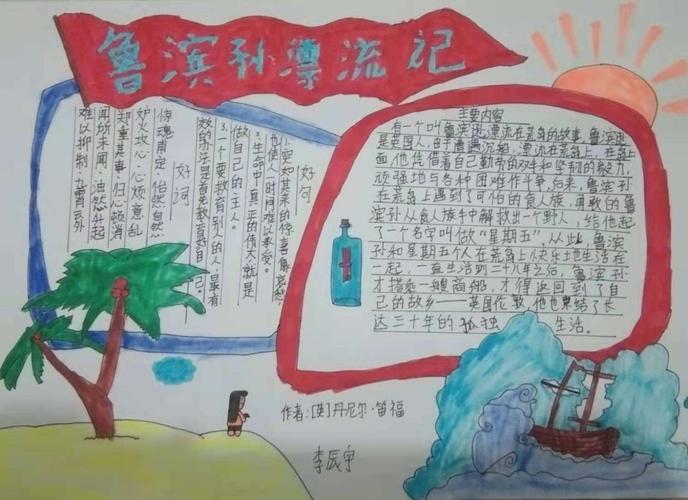 鲁滨孙漂流记
好句
1.突如其来的惊喜像哀愁,
也使人一时间难以承受。
2.生命中真正的伟大,就是
做自己的主人。
3.一个要教育别人的人,最有
效的办法是首先教育好自己。
好词
惊魂甫定 怡然自然
妒火攻心 心烦意乱
郑重其事 归心顿消
闻所未闻 油然升起
难以抑制 九霄云外
主要内容
有一个叫鲁滨逊漂流在荒岛的故事,鲁滨逊
是英国人,由于遭遇沉船,漂流在荒岛上,在岛上
面他凭借着自己勤劳的双手和坚韧的毅力,
顽强地与各种困难作斗争,后来,鲁滨孙
在荒岛上遇到了可怕的食人族,勇敢的鲁
滨孙从食人族手中解救出一个野人,给他起
了一个名字叫做“星期五”。从此,鲁滨
孙和星期五个人在荒岛上快乐地生活在
一起,一直生活到二十八年之后,鲁滨孙
才搭乘一艘商船,才得返回到了自
己的故乡——英国伦敦,他也束结了长
达三十年的孤独 生活。
作者:[英]丹尼尔·笛福
李辰宇